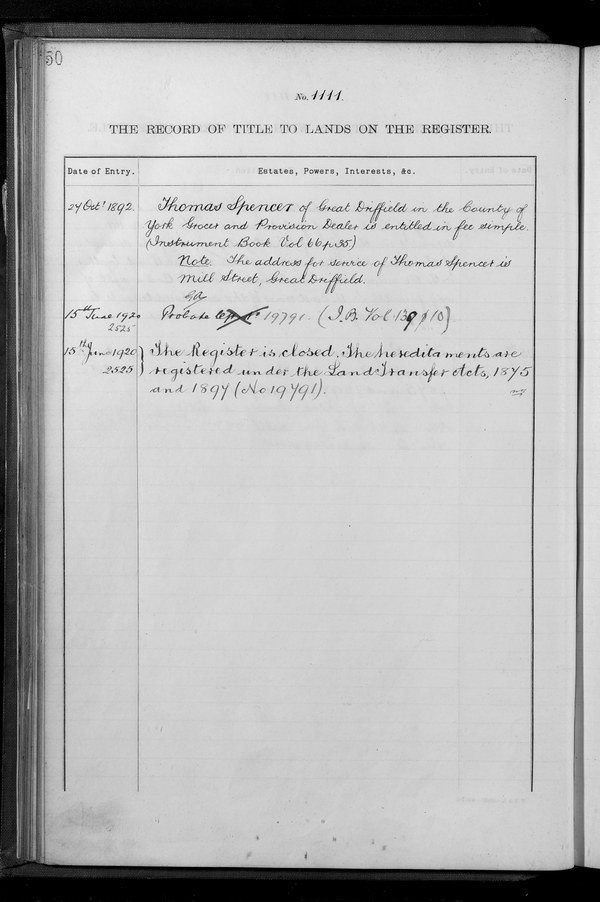 50
No. 1111.
THE RECORD OF TITLE TO LANDS ON THE REGISTER.
Date of Entry.
Estates, Powers, Interests, &c.
24 Oct' 1892.
Thomas Spencer of Great Driffield in the County of
York Grocer and Provision Dealer is entitled in fee simple.
(Instrument Book Vol 66 p 35)
Note. The address for service of Thomas Spencer is
Mill Street, Great Driffield.
15th June 1920
2525
Probate 19791. (I.B. Vol. 139 p 10)
15th June 1920
2525
The Register is closed. The hereditaments are
registered under the Land Transfer Acts, 1875
and 1897 (No 19791).